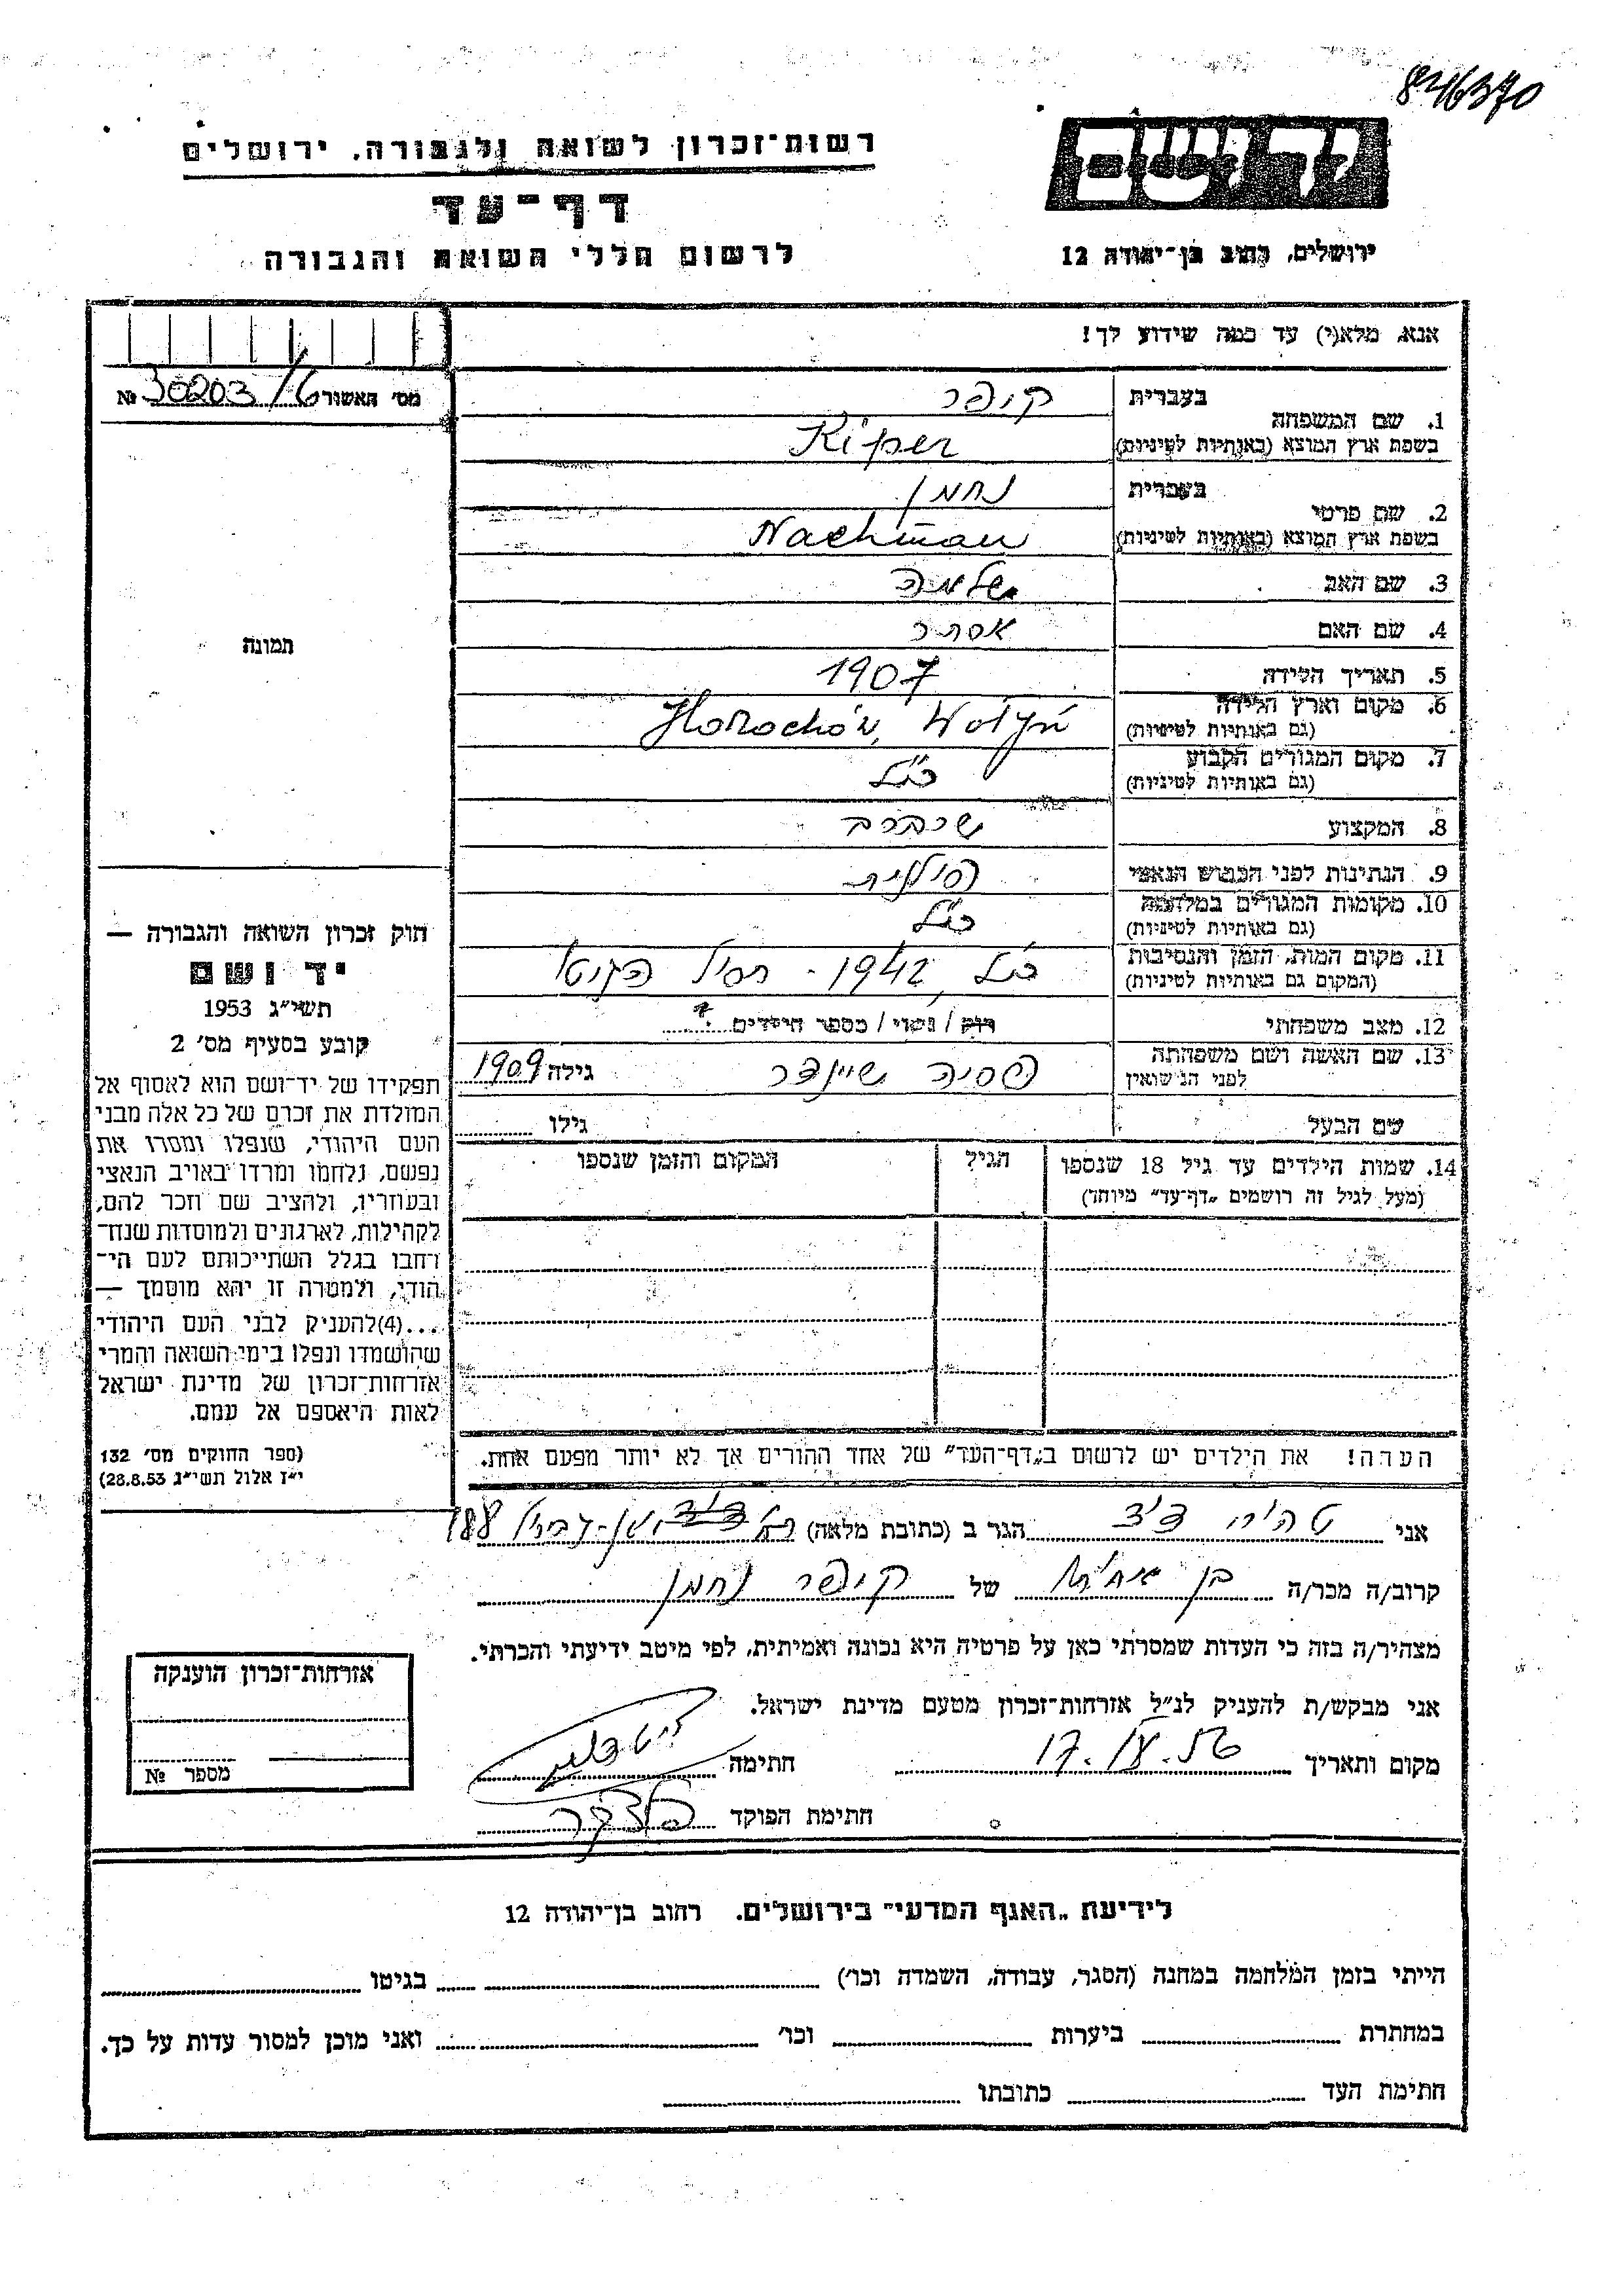 846370
יד ושם
רשות־זכרון לשואה ולגבורה, ירושלים
דף־עד
לרשום חללי השואה והגבורה
ירושלים, רחוב בן־יהודה 12
אנא, מלא(י) עד כמה שידוע לך!
מס׳ האשור № 30203/16
1. שם המשפחה בעברית קיפר
בשפת ארץ המוצא (באותיות לטיניות) Kiper
2. שם פרטי בעברית נחמן
בשפת ארץ המוצא (באותיות לטיניות) Nachman
3. שם האב שלמה
4. שם האם אסתר
5. תאריך הלידה 1907
6. מקום וארץ הלידה (גם באותיות לטיניות) Horochów, Wołyń
7. מקום המגורים הקבוע (גם באותיות לטיניות) כנ"ל
8. המקצוע
9. הנתינות לפני הכבוש הנאצי פולנית
10. מקומות המגורים במלחמה (גם באותיות לטיניות) כנ"ל
11. מקום המות, הזמן והנסיבות (המקום גם באותיות לטיניות) כנ"ל, 1942 - חסול הגיטו
12. מצב משפחתי רווק / נשוי / מספר הילדים ?
13. שם האשה ושם משפחתה לפני הנישואין פסיה שיינדר גילה 1909
שם הבעל גילו
14. שמות הילדים עד גיל 18 שנספו (מעל לגיל זה רושמים „דף־עד״ מיוחד) הגיל המקום והזמן שנספו
תמונה
חוק זכרון השואה והגבורה —
יד ושם
תשי״ג 1953
קובע בסעיף מס׳ 2
תפקידו של יד־ושם הוא לאסוף אל
המולדת את זכרם של כל אלה מבני
העם היהודי, שנפלו ומסרו את
נפשם, נלחמו ומרדו באויב הנאצי
ובעוזריו, ולהציב שם וזכר להם,
לקהילות, לארגונים ולמוסדות שנח־
רבו בגלל השתייכותם לעם הי־
הודי, ולמטרה זו יהא מוסמך —
...(4) להעניק לבני העם היהודי
שהושמדו ונפלו בימי השואה והמרי
אזרחות־זכרון של מדינת ישראל
לאות היאספם אל עמם.
(ספר החוקים מס׳ 132
י״ז אלול תשי״ג 28.8.53)
הערה! את הילדים יש לרשום ב„דף־העד״ של אחד ההורים אך לא יותר מפעם אחת.
אני הגר ב (כתובת מלאה) 188
קרוב/ה מכר/ה בן של קיפר נחמן
מצהיר/ה בזה כי העדות שמסרתי כאן על פרטיה היא נכונה ואמיתית, לפי מיטב ידיעתי והכרתי.
אני מבקש/ת להעניק לנ״ל אזרחות־זכרון מטעם מדינת ישראל.
מקום ותאריך חתימה
חתימת הפוקד
אזרחות־זכרון הוענקה
מספר №
לידיעת „האגף המדעי״ בירושלים. רחוב בן־יהודה 12
הייתי בזמן המלחמה במחנה (הסגר, עבודה, השמדה וכו׳) בגיטו
במחתרת ביערות וכו׳ ואני מוכן למסור עדות על כך.
חתימת העד כתובתו